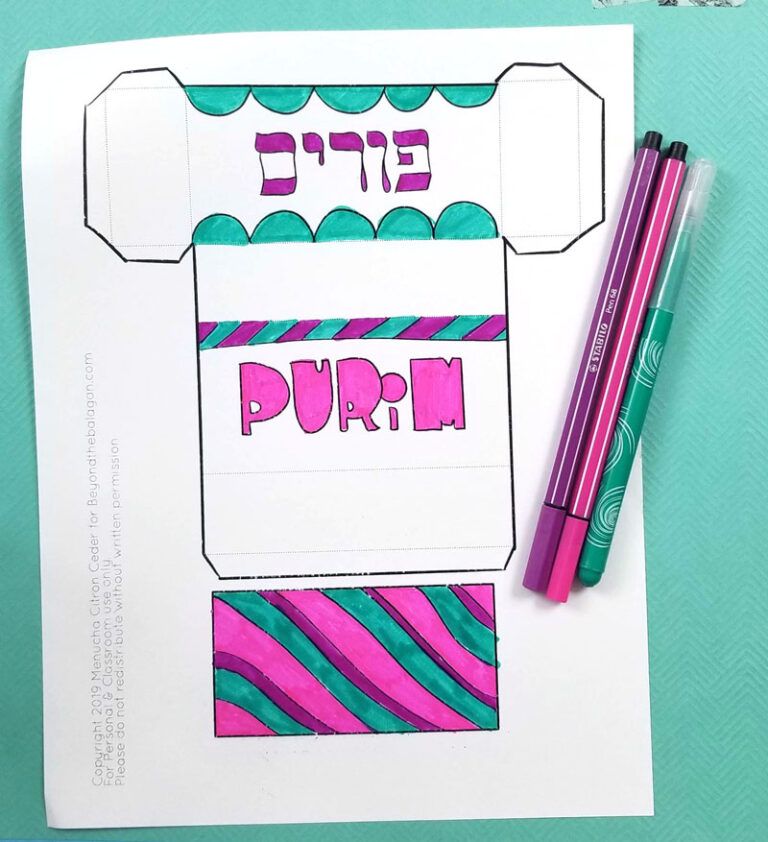 פורים
PURiM
STABILO Pen 68
Copyright 2019 Menucha Citron Ceder for Beyondthebalagan.com
For Personal & Classroom use only
Please do not redistribute without written permission